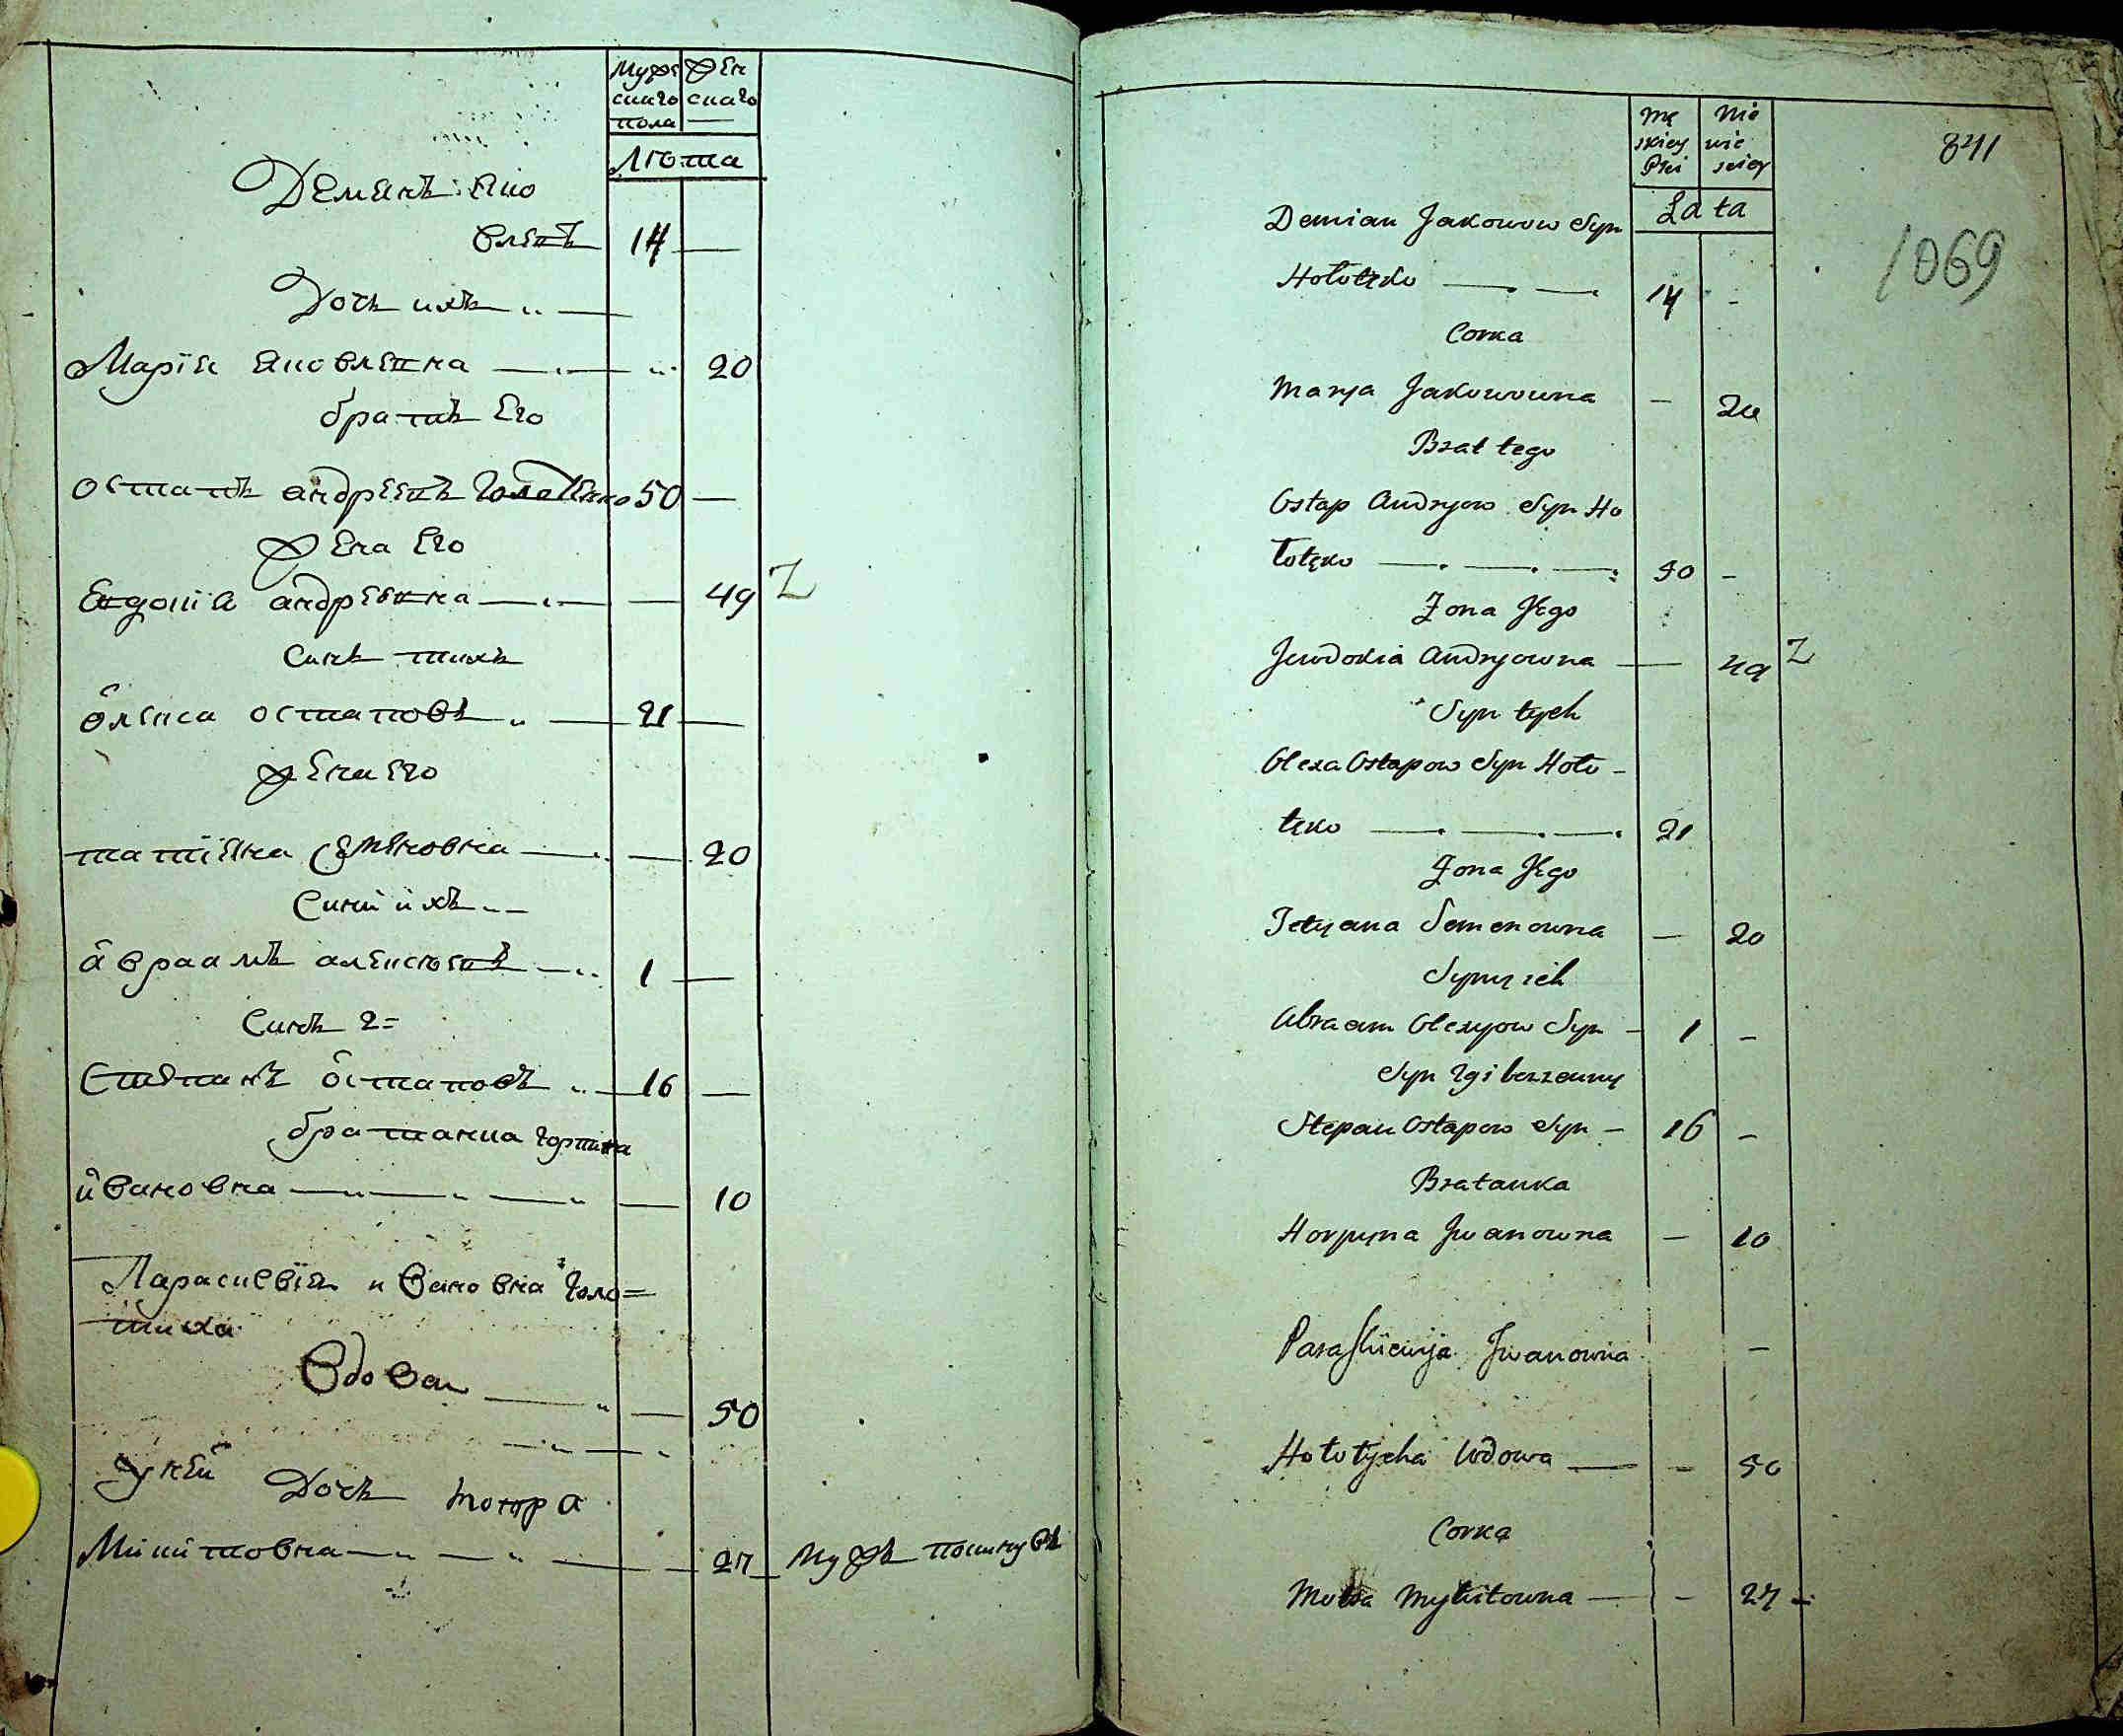 Муже Жен
скаго скаго
пола
Лѣта
Демянъ Яко
влевъ 14 —
Дочь ихъ
Марія Яковлевна — 20
братъ Его
Остапъ андреевъ Голотенко 50 —
Жена Его
Евдокія андреевна — 49 Z
Синъ тихъ
Олекса остаповъ 21 —
Жена Его
татіяна Семеновна — 20
Сини ихъ
авраамъ алексеевъ 1 —
Синъ 2=
Степанъ остаповъ 16 —
братанка горпина
ивановна — 10
Параскевія ивановна Голо=
тиха
Вдова — 50
Дочь
Микитовна — 27 Мужъ покинувъ
Mę Nie
skiey wie
Płci sciey
841
Lata
1069
Demian Jakowow Syn
Hołotęko 14 -
Corka
Marya Jakowowna - 20
Brat tego
Ostap Andryow Syn Ho
łotęko 50 -
Żona Jego
Jewdokia Andryowna — 49 Z
Syn tych
Olexa Ostapow Syn Hoło-
tęko 21
Żona Jego
Tetyana Semenowna - 20
Synyich
Abraam Olexyow Syn - 1 -
Syn 2gi bezzenny
Stepan Ostapow Syn - 16 -
Bratanka
Horpyna Jwanowna - 10
Paraskiewija Jwanowna -
Hołotycha Wdowa — - 50
Corka
Motra Mykitowna — - 27 -